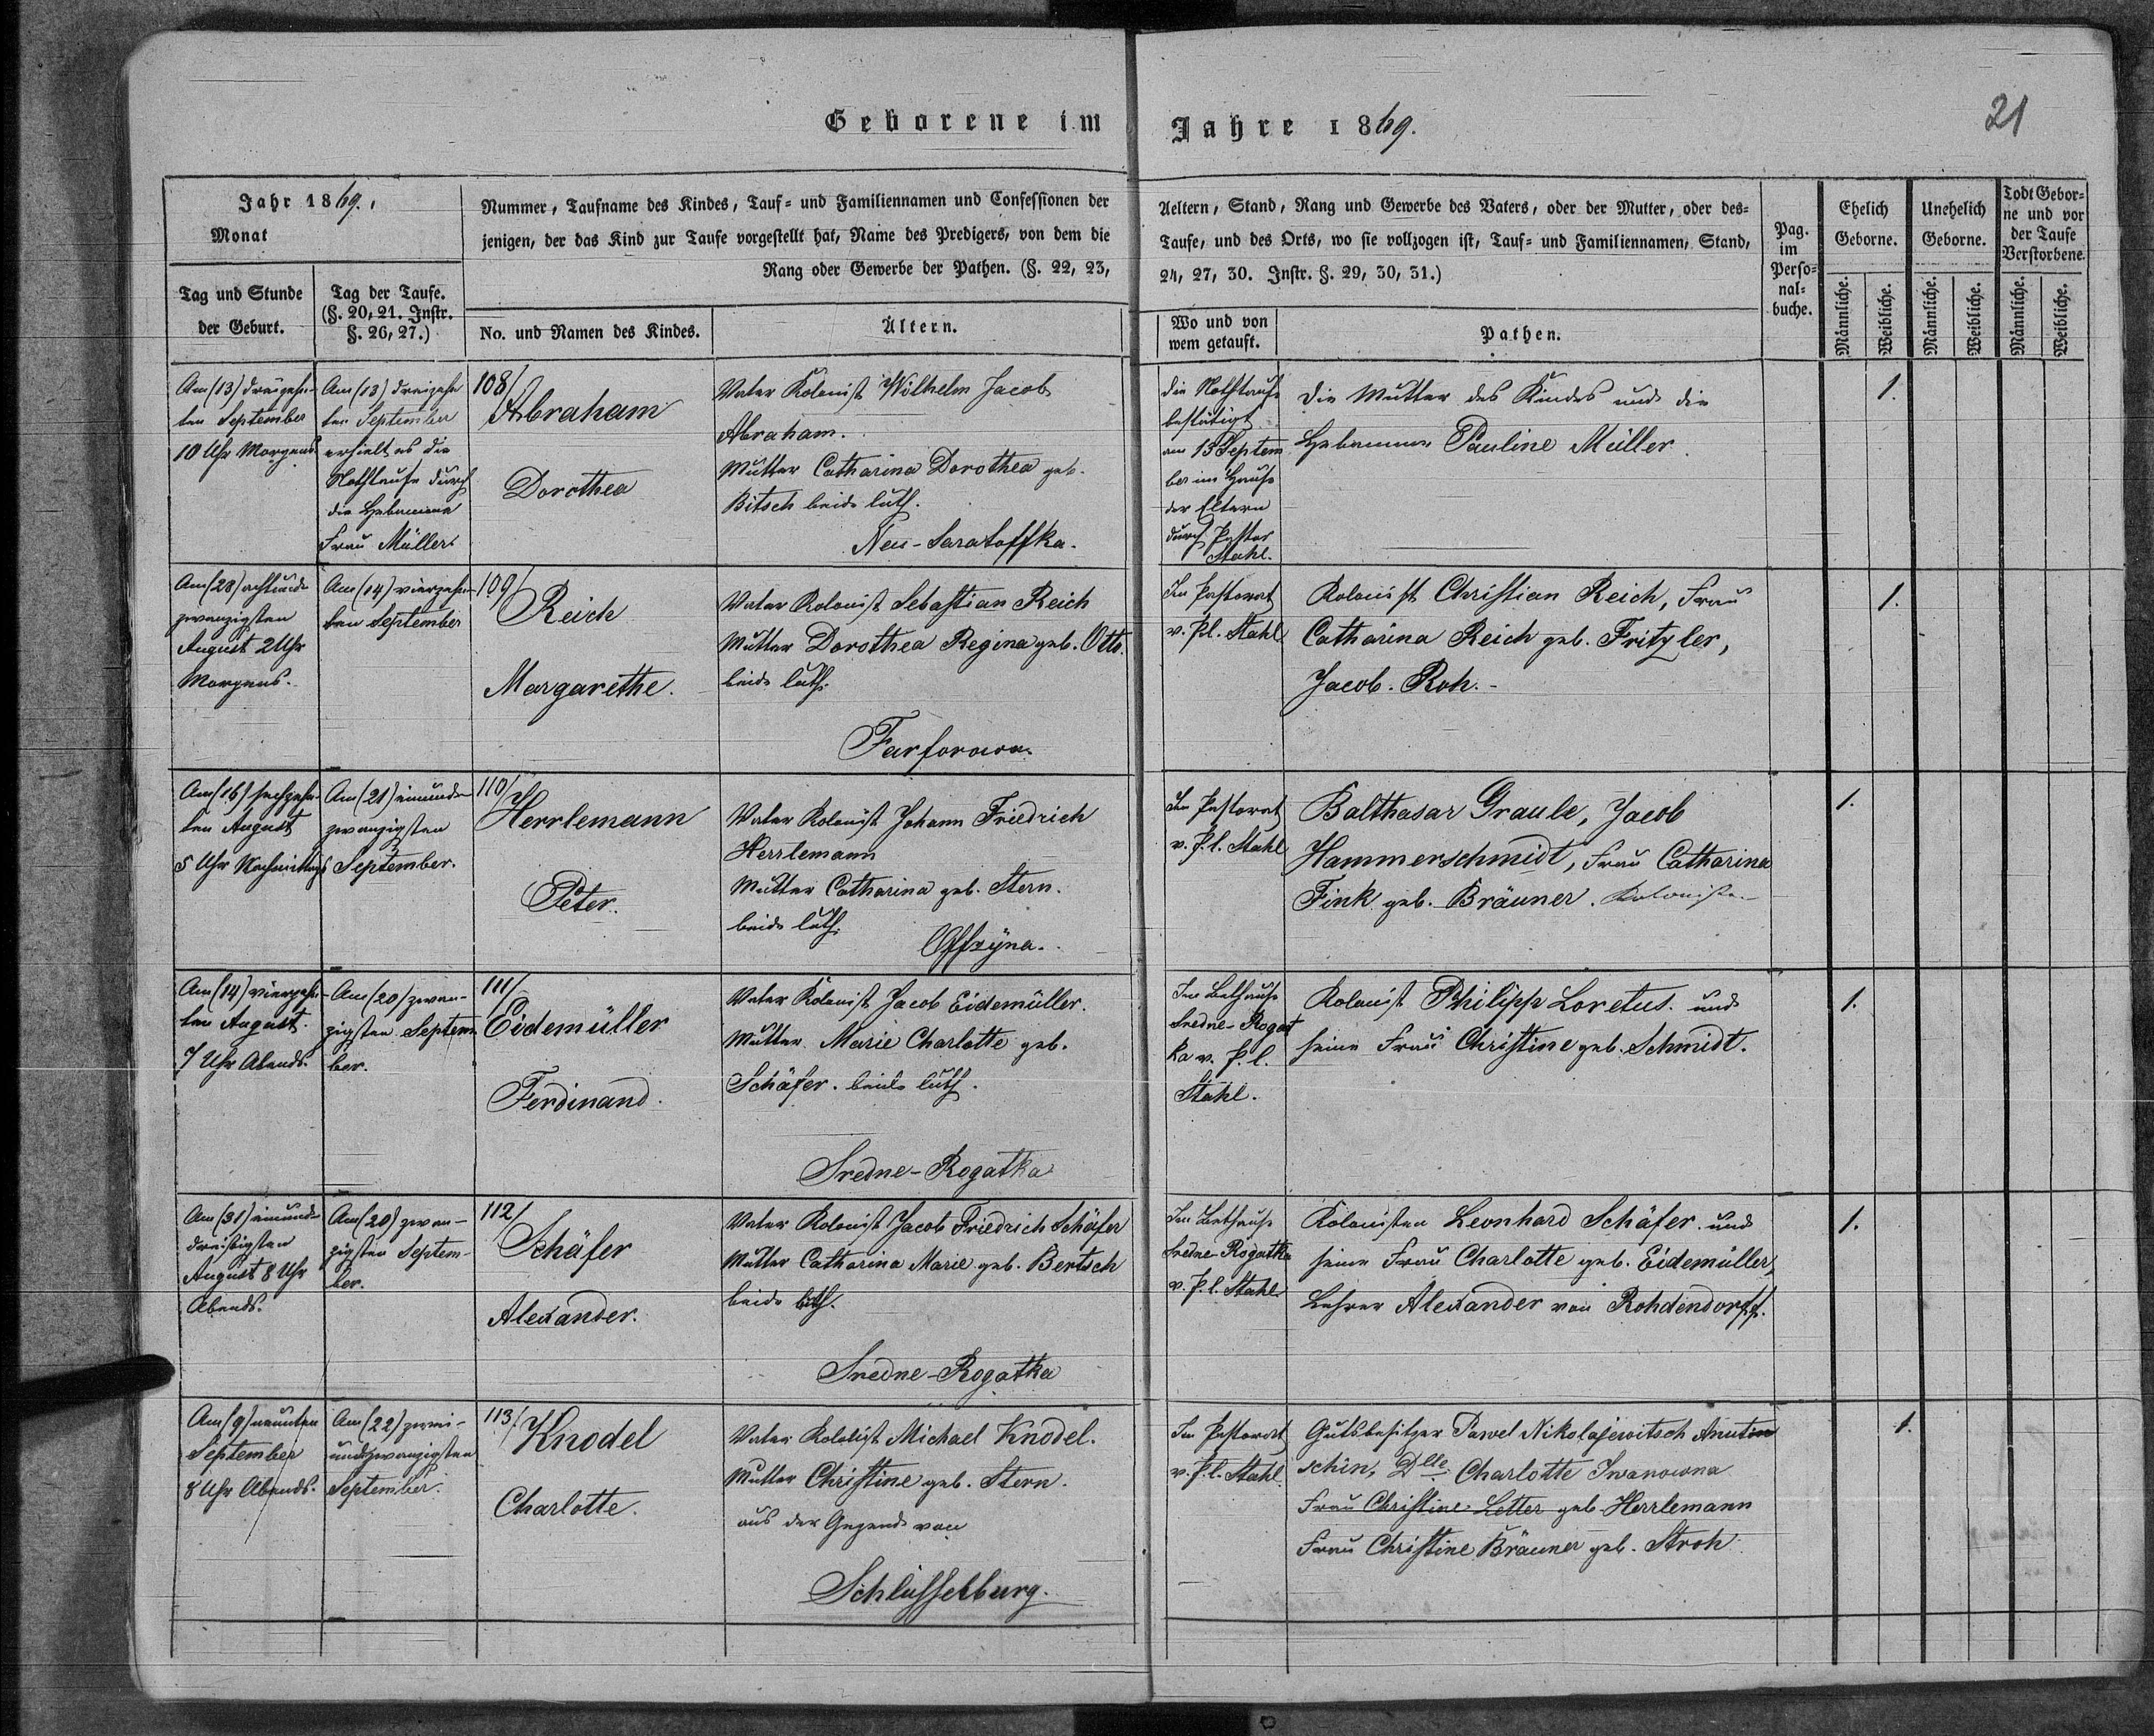 Geborene im Jahre 1869.
21
Jahr 1869.
Monat
Tag und Stunde
der Geburt.
Tag der Taufe.
(§. 20, 21. Instr.
§. 26, 27.)
Nummer, Taufname des Kindes, Tauf- und Familiennamen und Confessionen der
jenigen, der das Kind zur Taufe vorgestellt hat, Name des Predigers, von dem die
Rang oder Gewerbe der Pathen. (§. 22, 23,
No. und Namen des Kindes.
Ältern.
Aeltern, Stand, Rang und Gewerbe des Vaters, oder der Mutter, oder des=
Taufe, und des Orts, wo sie vollzogen ist, Tauf- und Familiennamen, Stand,
24, 27, 30. Instr. §. 29, 30, 31.)
Wo und von
wem getauft.
Pathen.
Pag.
im
Perso=
nal=
buche.
Ehelich
Geborne.
Unehelich
Geborne.
Todt Gebor=
ne und vor
der Taufe
Verstorbene.
Männliche.
Weibliche.
Männliche.
Weibliche.
Männliche.
Weibliche.
Am (13) dreizehn-
ten September
10 Uhr Morgens.
Am (13) dreizehn
ten September
erhielt es die
Nothtaufe durch
die Hebamme
Frau Müller.
108/
Abraham
Dorothea
Vater Kolonist Wilhelm Jacob
Abraham.
Mutter Catharina Dorothea geb.
Bitsch beide luth.
Neu-Saratoffka.
die Nothtaufe
bestätigt
am 13 Septem
ber im Hause
der Eltern
durch Pastor
Stahl.
Die Mutter des Kindes und die
Hebamme Pauline Müller.
1.
Am (28) achtund
zwanzigsten
August 2 Uhr
Morgens.
Am (14) vierzehn-
ten September
109/
Reich
Margarethe.
Vater Kolonist Sebastian Reich
Mutter Dorothea Regina geb. Otto.
beide luth.
Farforowa.
Im Pastorat
v. P. l. Stahl
Kolonist Christian Reich, Frau
Catharina Reich geb. Fritzler,
Jacob Roh.
1.
Am (16) sechzehn-
ten August
5 Uhr Nachmittags
Am (21) einund-
zwanzigsten
September.
110/
Herrlemann
Peter.
Vater Kolonist Johann Friedrich
Herrlemann
Mutter Catharina geb. Stern.
beide luth.
Im Pastorat
v. P. l. Stahl
Balthasar Graule, Jacob
Hammerschmidt, Frau Catharina
Fink geb. Bräuner. Kolonisten
1.
Am (14) vierzehn-
ten August.
7 Uhr Abends.
Am (20) zwan-
zigsten Septem
ber.
111/
Eidemüller
Ferdinand.
Vater Kolonist Jacob Eidemüller.
Mutter Marie Charlotte geb.
Schäfer. beide luth.
Sredne-Rogatka
Im Bethause
Sredne-Rogat
ka v. P. l.
Stahl.
Kolonist Philipp Loretus. und
seine Frau Christine geb. Schmidt.
1.
Am (31) einund-
dreißigsten
August 8 Uhr
Abends.
Am (20) zwan-
zigsten Septem-
ber.
112/
Schäfer
Alexander.
Vater Kolonist Jacob Friedrich Schäfer
Mutter Catharina Marie geb. Bertsch
beide luth.
Sredne-Rogatka
Im Bethause
Sredne-Rogatka
v. P. l. Stahl
Kolonisten Leonhard Schäfer. und
seine Frau Charlotte geb. Eidemüller,
Lehrer Alexander von Rohdendorff.
1.
Am (9) neunten
September
8 Uhr Abends.
Am (22) zwei-
undzwanzigsten
September.
113/
Knodel
Charlotte.
Vater Kolonist Michael Knodel.
Mutter Christine geb. Stern.
aus der Gegend von
Schlüsselburg.
Im Pastorat
v. P. l. Stahl.
Gutsbesitzer Pawel Nikolajewitsch Anutin
schin, Dlle Charlotte Iwanowna
Frau Christine Letter geb. Herrlemann
Frau Christine Bräuner geb. Stroh.
1.